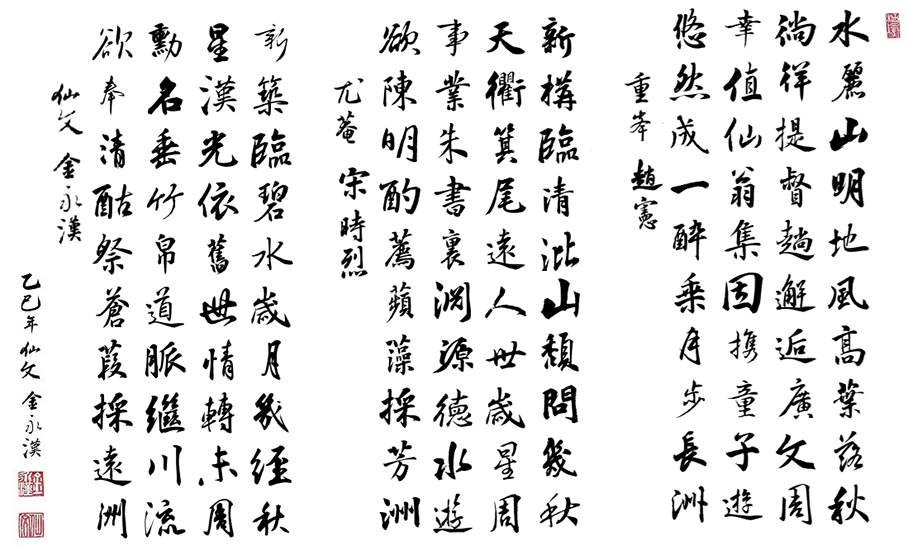 水麗山明地風高葉落秋
徜徉提督趙邂逅廣文周
幸值仙翁集因携童子遊
悠然成一醉乘月步長洲
重峯 趙憲
新構臨清沘山頹問幾秋
天衢箕尾遠人世歲星周
事業朱書裏淵源德水遊
欲陳明酌薦蘋藻採芳洲
尤菴 宋時烈
新築臨碧水歲月幾經秋
星漢光依舊世情轉未周
勳名垂竹帛道脈繼川流
欲奉清酤祭蒼葭採遠洲
仙文 金永漢
乙巳年 仙文 金永漢